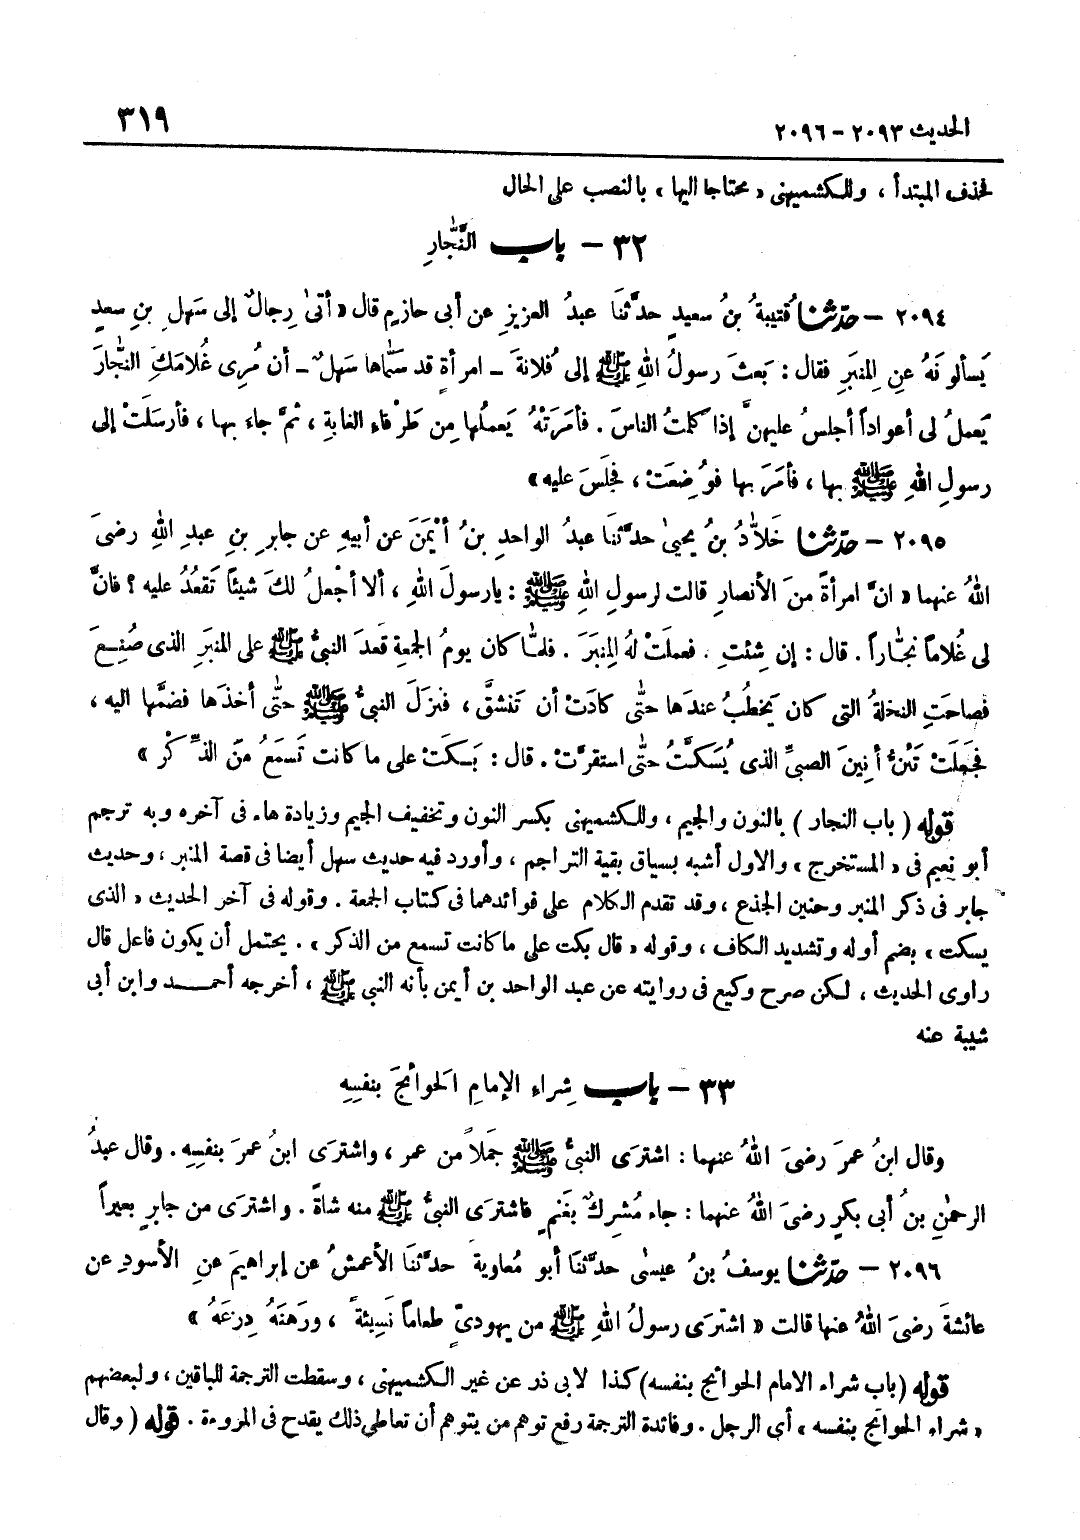 الحديث ٢٠٩٣ – ٢٠٩٦
٣١٩
فحذف المبتدأ ، وللكشميهنى « محتاجا اليها » بالنصب على الحال
٣٢ – باب النَّجّارِ
٢٠٩٤ – حدّثنا قُتيبةُ بنُ سعيدٍ حدَّثنَا عبدُ العزيزِ عن أبى حازمٍ قال « أتىٰ رِجالٌ إلى سَهلِ بنِ سعدٍ
يَسألونَهُ عنِ المِنبَرِ فقال : بَعثَ رسولُ اللهِ ﷺ إلى فُلانةَ – امرأةٍ قد سَمّاها سَهلٌ – أن مُرِى غُلامَكِ النجّارَ
يَعملُ لى أعواداً أجلسُ عليهنَّ إذا كلمتُ الناسَ . فأمَرَتْهُ يَعملُها مِن طَرْفاءِ الغابةِ ، ثمَّ جاءَ بها ، فأرسَلَتْ إلى
رسولِ اللهِ ﷺ بها ، فأمَرَ بها فوُضِعَتْ ، فجلَسَ عليه »
٢٠٩٥ – حدّثنا خَلاّدُ بنُ يحيىٰ حدَّثنَا عبدُ الواحدِ بنُ أيْمَنَ عن أبيهِ عن جابرِ بنِ عبدِ اللهِ رضىَ
اللهُ عنهما « انَّ امرأةً منَ الأنصارِ قالت لرسولِ اللهِ ﷺ : يارسولَ اللهِ ، ألا أجْعلُ لكَ شيئاً تَقعُدُ عليه ؟ فانَّ
لى غُلاماً نجّاراً . قال : إن شِئتِ . فعملَتْ لهُ المِنبَرَ . فلمّا كان يومُ الجمعةِ قعدَ النبىُّ ﷺ على المنبَرِ الذى صُنِعَ
فصاحَتِ النخلةُ التى كان يَخطُبُ عندَها حتّى كادَتْ أن تَنشقَّ ، فنزلَ النبىُّ ﷺ حتّى أخذَها فضمَّها اليه ،
فجعلَتْ تَئنُّ أنِينَ الصبىِّ الذى يُسَكَّتُ حتّى استقرَّتْ . قال : بَسكَتْ على ما كانت تَسمَعُ منَ الذِّكْر »
قوله ( باب النجار ) بالنون والجيم ، وللكشميهنى بكسر النون وتخفيف الجيم وزيادة هاء فى آخره وبه ترجم
أبو نعيم فى « المستخرج » والاول أشبه بسياق بقية التراجم ، وأورد فيه حديث سهل أيضا فى قصة المنبر ، وحديث
جابر فى ذكر المنبر وحنين الجذع ، وقد تقدم الكلام على فوائدهما فى كتاب الجمعة . وقوله فى آخر الحديث « الذى
يسكت » بضم أوله وتشديد الكاف ، وقوله « قال بكت على ما كانت تسمع من الذكر » . يحتمل أن يكون فاعل قال
راوى الحديث ، لكن صرح وكيع فى روايته عن عبد الواحد بن أيمن بأنه النبى ﷺ ، أخرجه أحمد وابن أبى
شيبة عنه
٣٣ – باب شِراءِ الإمامِ الحوائجَ بنفسِهِ
وقال ابنُ عمرَ رضىَ اللهُ عنهما : اشترَى النبىُّ ﷺ جَملاً من عمر ، واشترَى ابنُ عمرَ بنفسِهِ . وقال عبدُ
الرحمٰنِ بنُ أبى بكرٍ رضىَ اللهُ عنهما : جاء مُشرِكٌ بغَنمٍ فاشترَى النبىُّ ﷺ منه شاةً . واشترَى من جابرٍ بعيراً
٢٠٩٦ – حدّثنا يوسفُ بنُ عيسىٰ حدَّثنَا أبو مُعاويةَ حدَّثنَا الأعمشُ عن إبراهيمَ عنِ الأسودِ عن
عائشةَ رضىَ اللهُ عنها قالت « اشترَى رسولُ اللهِ ﷺ من يهودىٍّ طعاماً نَسِيئةً ، ورَهنَهُ دِرعَهُ »
قوله (باب شراء الامام الحوائج بنفسه) كذا لابى ذر عن غير الكشميهنى ، وسقطت الترجمة للباقين ، ولبعضهم
« شراء الحوائج بنفسه » أى الرجل . وفائدة الترجمة رفع توهم من يتوهم أن تعاطى ذلك يقدح فى المروءة . قوله ( وقال